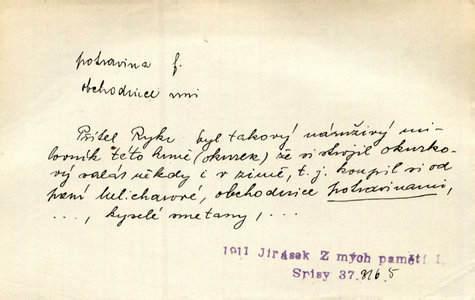 potravina f.
obchodnice mni
Přítel Rykr byl takový náruživý mi-
lovník této krmě (okurek) že si strojil okurko-
vý salát někdy i v zimě, t. j. koupil si od
paní Melicharové, obchodnice potravinami,
..., kyselé smetany, ...
1911 Jirásek Z mých pamětí 1.
Spisy 37. 816 5